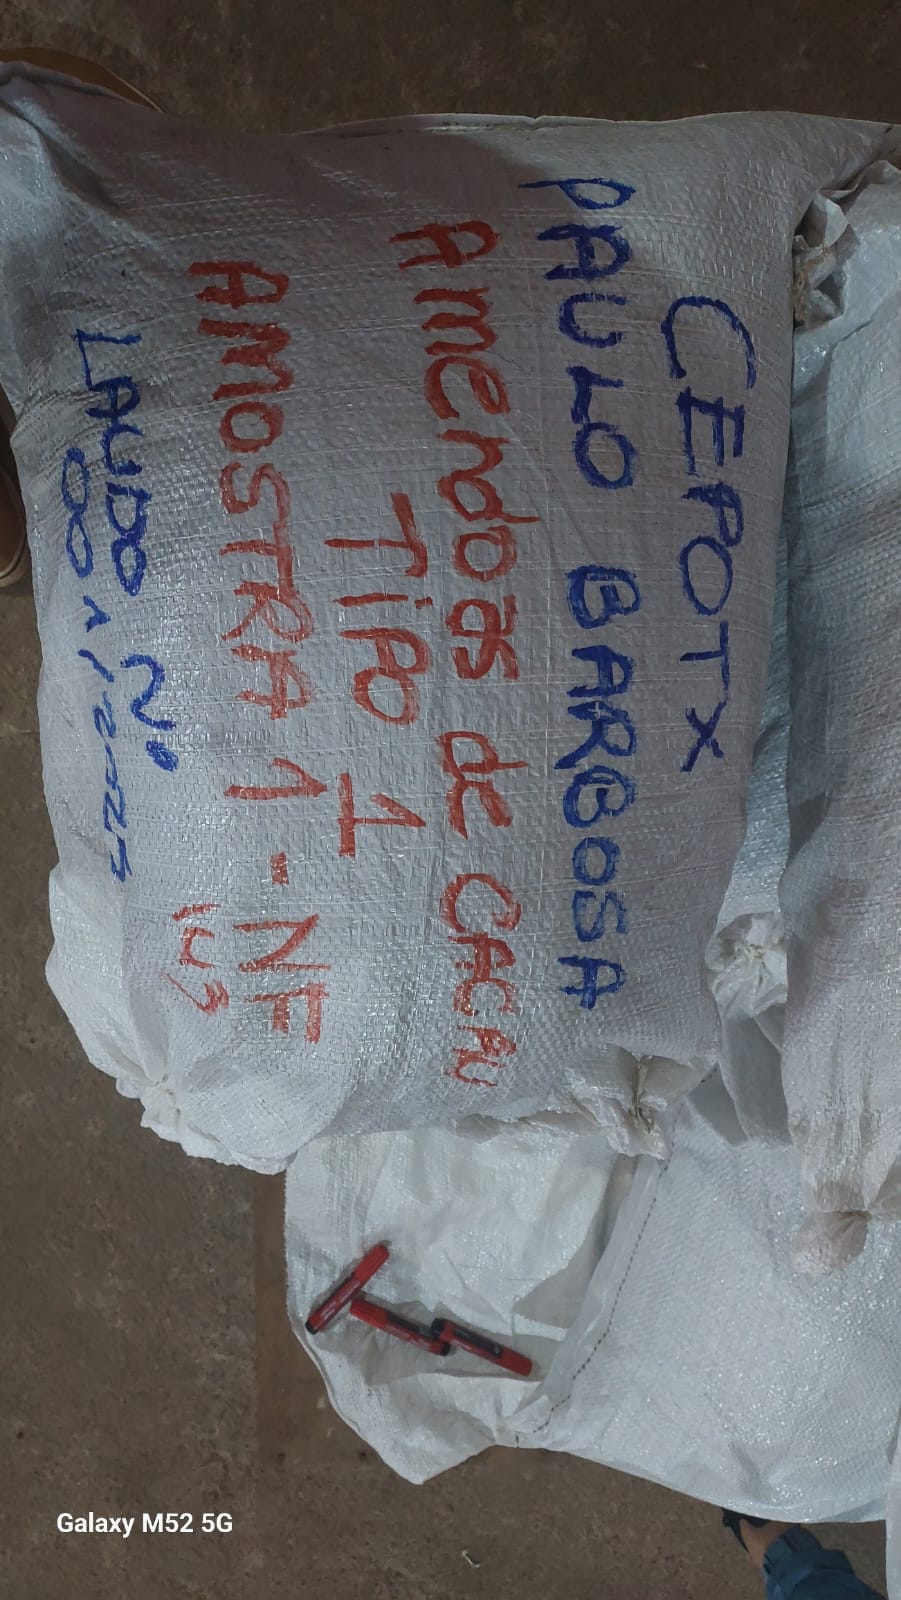 CEPOTX
PAULO BARBOSA
Amendoas de CACAU
TiPO 1
AMOSTRA 1 - NF
143
LAUDO Nº
001/2025
Galaxy M52 5G